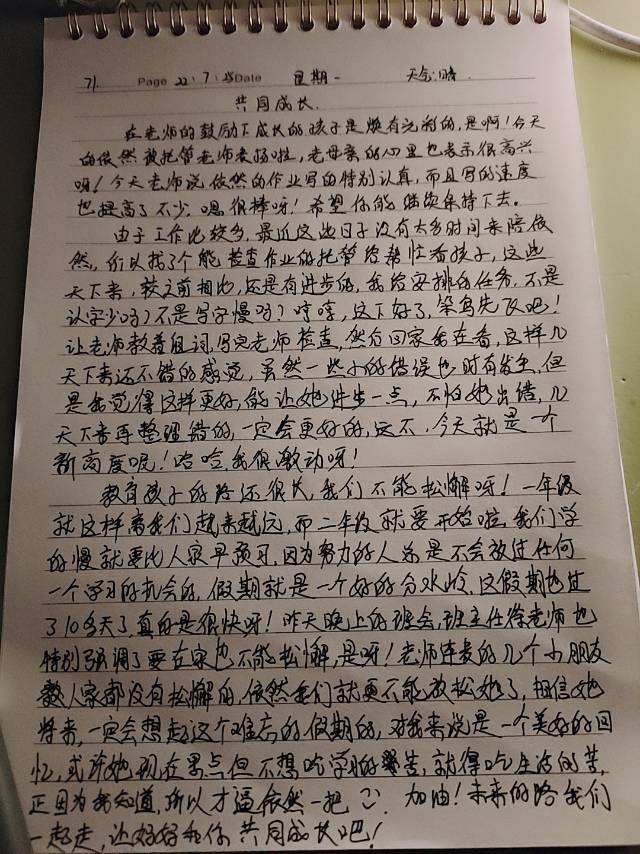 71. Page 22.7.25 Date 星期一 天气:晴.
共同成长.
在老师的鼓励下成长的孩子是焕有光彩的,是啊!今天
的依然被托管老师表扬啦,老母亲的心里也表示很高兴
呀!今天老师说依然的作业写的特别认真,而且写的速度
也提高了不少,嗯,很棒呀!希望你能继续保持下去。
由于工作比较多,最近这些日子没有太多时间来陪依
然,所以找了个能检查作业的托管给帮忙看孩子,这些
天下来,较之前相比,还是有进步的,我给安排的任务,不是
认字少吗?不是写字慢吗?嘻嘻,这下好了,笨鸟先飞吧!
让老师教着组词,写完老师检查,然后回家我在看,这样几
天下来还不错的感觉,虽然一些小的错误也时有发生,但
是我觉得这样更好,能让她进步一点,不怕她出错,几
天下来再整理错的,一定会更好的,这不,今天就是一个
新高度呢!哈哈,我很激动呀!
教育孩子的路还很长,我们不能松懈呀!一年级
就这样离我们越来越远,而二年级就要开始啦,我们学
的慢就要比人家早预习,因为努力的人总是不会放过任何
一个学习的机会的,假期就是一个好的分水岭,这假期也过
了10多天了,真的是很快呀!昨天晚上的班会,班主任徐老师也
特别强调了要在家也不能松懈,是呀!老师连麦的几个小朋友
数人家都没有松懈的,依然我们就更不能放松她了,相信她
将来,一定会想起这个难忘的假期的,对我来说是一个美好的回
忆,或许她现在累点但不想吃学习的苦,就得吃生活的苦,
正因为我知道,所以才逼依然一把 加油!未来的路我们
一起走,让好好和你共同成长吧!